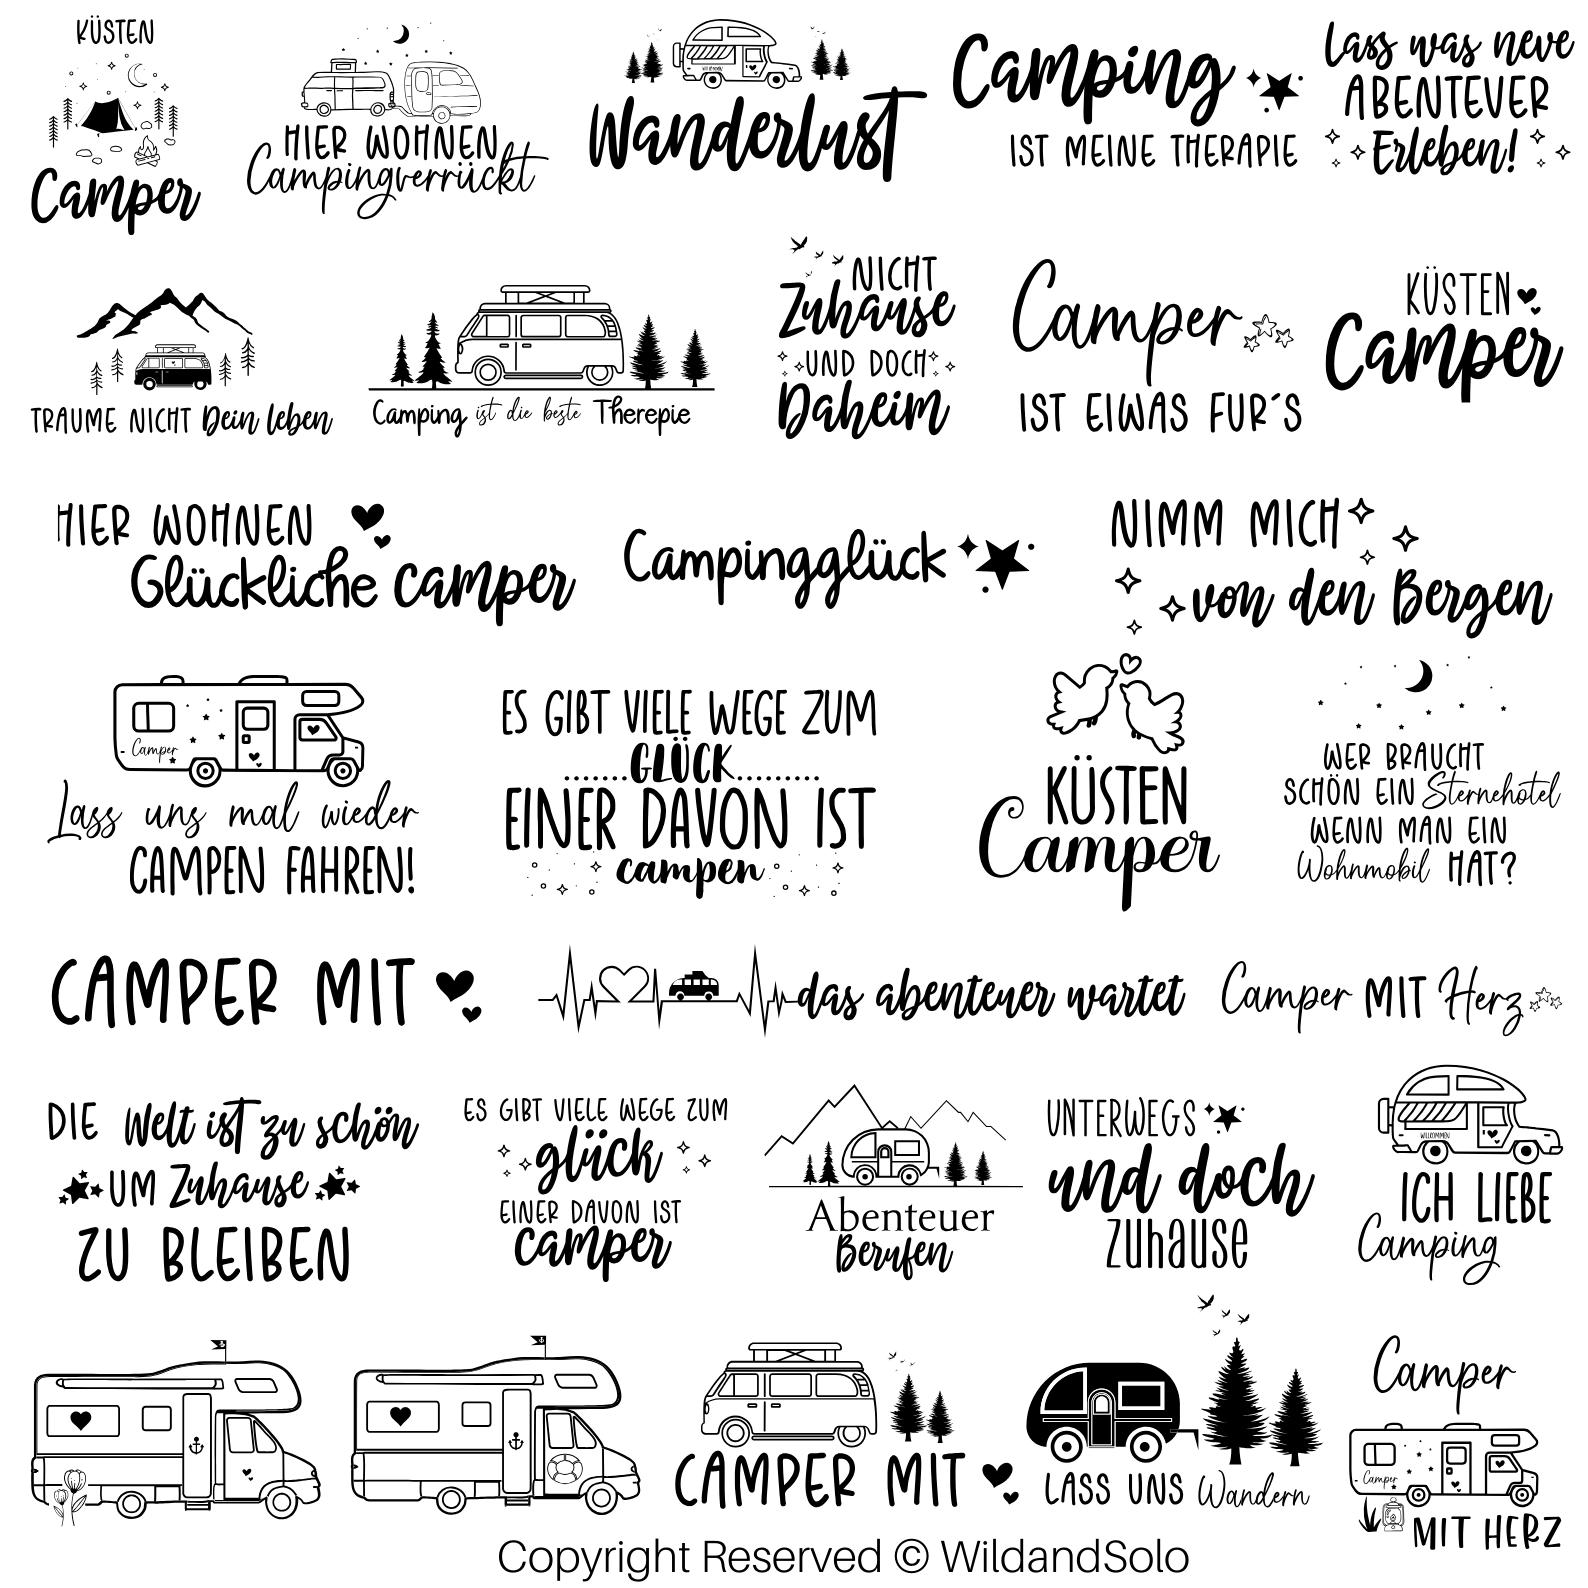 KÜSTEN
Camper
HIER WOHNEN
Campingverrückt
Wanderlust
Camping
IST MEINE THERAPIE
Lass was neue
ABENTEUER
Erleben!
TRAUME NICHT Dein leben
Camping ist die beste Therepie
NICHT
Zuhause
UND DOCH
Daheim
Camper
IST EIWAS FUR´S
KÜSTEN
Camper
HIER WOHNEN
Glückliche camper
Campingglück
NIMM MICH
von den Bergen
Camper
Lass uns mal wieder
CAMPEN FAHREN!
ES GIBT VIELE WEGE ZUM
.......GLÜCK.........
EINER DAVON IST
campen
KÜSTEN
Camper
WER BRAUCHT
SCHÖN EIN Sternehotel
WENN MAN EIN
Wohnmobil HAT?
CAMPER MIT
das abenteuer wartet
Camper MIT Herz
DIE Welt ist zu schön
UM Zuhause
ZU BLEIBEN
ES GIBT VIELE WEGE ZUM
glück
EINER DAVON IST
camper
Abenteuer
Berufen
UNTERWEGS
und doch
zuhause
WILLKOMMEN
ICH LIEBE
Camping
CAMPER MIT
LASS UNS Wandern
Camper
Camper
MIT HERZ
Copyright Reserved © WildandSolo